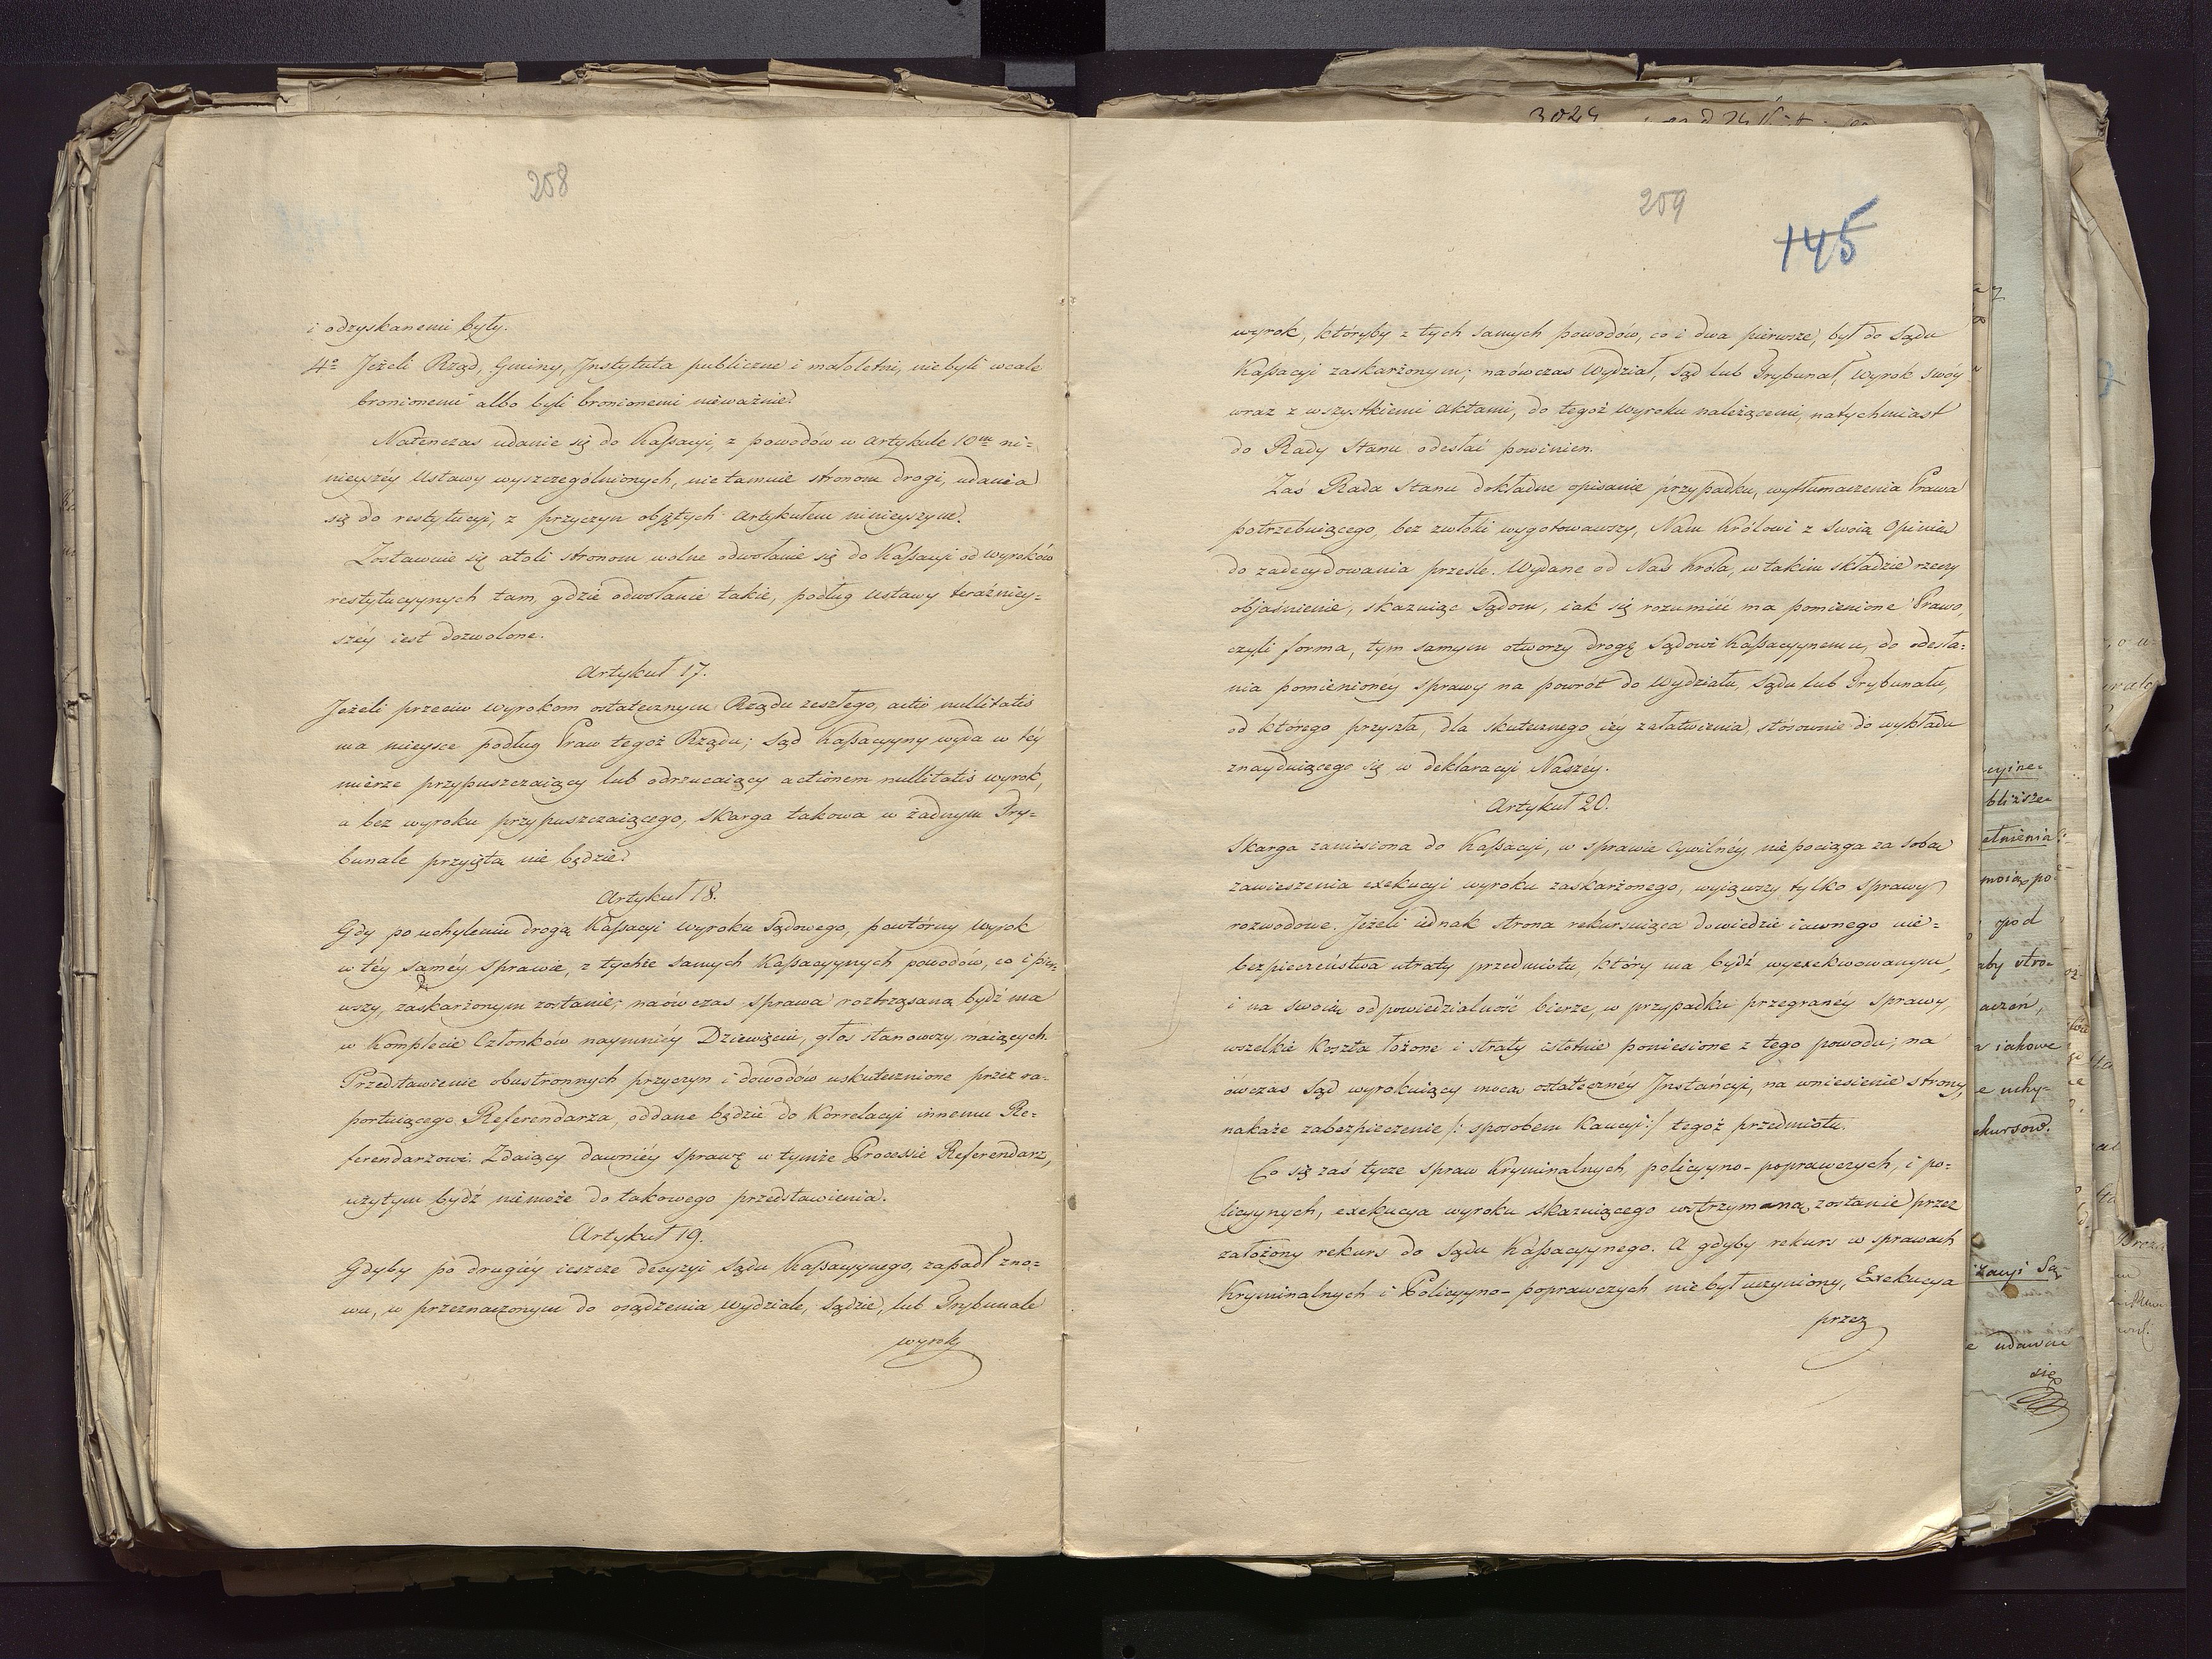 208
i odzyskanemi były.
4º Jeżeli Rząd, Gminy, Instytuta publiczne i małoletni, nie byli wcale
bronionemi albo byli bronionemi nieważnie.
Natenczas udanie się do Kassacyi, z powodów w artykule 10m ni=
nieyszéy Ustawy wyszczególnionych, nie tamuie stronom drogi, udania
się do restytucyi, z przyczyn objętych Artykułem ninieyszym.
Zostawuie się atoli stronom wolne odwołanie się do Kassacyi od wyroków
restytucyynych tam, gdzie odwołanie takie, podług Ustawy teraźniey=
széy iest dozwolone.
Artykuł 17.
Jeżeli przeciw wyrokom ostatecznym Rządu zeszłego, actio nullitatis
ma mieysce podług Praw tegoż Rządu; Sąd Kassacyyny wyda w téy
mierze przypuszczaiący lub odrzucaiący actionem nullitatis wyrok,
a bez wyroku przypuszczaiącego, skarga takowa w żadnym Try=
bunale przyięta nie będzie.
Artykuł 18.
Gdy po uchyleniu drogą Kassacyi wyroku Sądowego, powtórny wyrok
w téy saméy sprawie, z tychże samych Kassacyynych powodów, co i pier=
wszy, zaskarżonym zostanie; naówczas sprawa roztrząsaną bydź ma
w Komplecie Członków naymniéy Dziewięciu, głos stanowszy maiących.
Przedstawienie obustronnych przyczyn i dowodów uskutecznione przez ra=
portuiącego Referendarza, oddane będzie do Korrelacyi innemu Re=
ferendarzowi. Zdaiący dawniéy sprawę w tymże Processie Referendarz,
użytym bydź nie może do takowego przedstawienia.
Artykuł 19.
Gdyby po drugiéy ieszcze decyzyi Sądu Kassacyynego, zapadł zno=
wu, w przeznaczonym do osądzenia wydziale, Sądzie, lub Trybunale
wyrok
209
145
wyrok, któryby z tych samych powodów, co i dwa pierwsze, był do Sądu
Kassacyi zaskarżonym; naówczas Wydział, Sąd lub Trybunał, Wyrok swóy
wraz z wszystkiemi aktami, do tegoż wyroku należącemi, natychmiast
do Rady Stanu odesłać powinien.
Zaś Rada Stanu dokładne opisanie przypadku, wytłumaczenia Prawa
potrzebuiącego, bez zwłoki wygotowawszy, Nam Królowi z swoią Opinią
do zadecydowania prześle. Wydane od Nas Króla, w takim składzie rzeczy
objaśnienie, skazuiąc Sądom, iak się rozumieć ma pomienione Prawo,
czyli forma, tym samym otworzy drogę Sądowi Kassacyynemu, do odesła=
nia pomienionéy sprawy na powrót do Wydziału, Sądu lub Trybunału,
od którego przyszła, dla skutecznego iéy załatwienia, stósownie do wykładu
znayduiącego się w deklaracyi Naszey.
Artykuł 20.
Skarga zaniesiona do Kassacyi, w sprawie Cywilnéy, nie pociąga za sobą
zawieszenia exekucyi wyroku zaskarżonego, wyiąwszy tylko sprawy
rozwodowe. Jeżeli iednak strona rekursuiąca dowiedzie iawnego nie=
bezpieczeństwa utraty przedmiotu, który ma bydź wyexekwowanym,
i na swoią odpowiedzialność bierze, w przypadku przegranéy sprawy,
wszelkie Koszta łożone i straty istotnie poniesione z tego powodu; na
ówczas Sąd wyrokuiący mocą ostatecznéy Instancyi, na wniesienie strony,
nakaże zabezpieczenie /: sposobem Kaucyi :/ tegoż przedmiotu.
Co się zaś tycze spraw Kryminalnych, policyyno-poprawczych, i po=
licyynych, exekucya wyroku skazuiącego wstrzymaną zostanie przez
założony rekurs do Sądu Kassacyynego. A gdyby rekurs w sprawach
Kryminalnych i Policyyno-poprawczych nie był uczyniony, Exekucya
przez